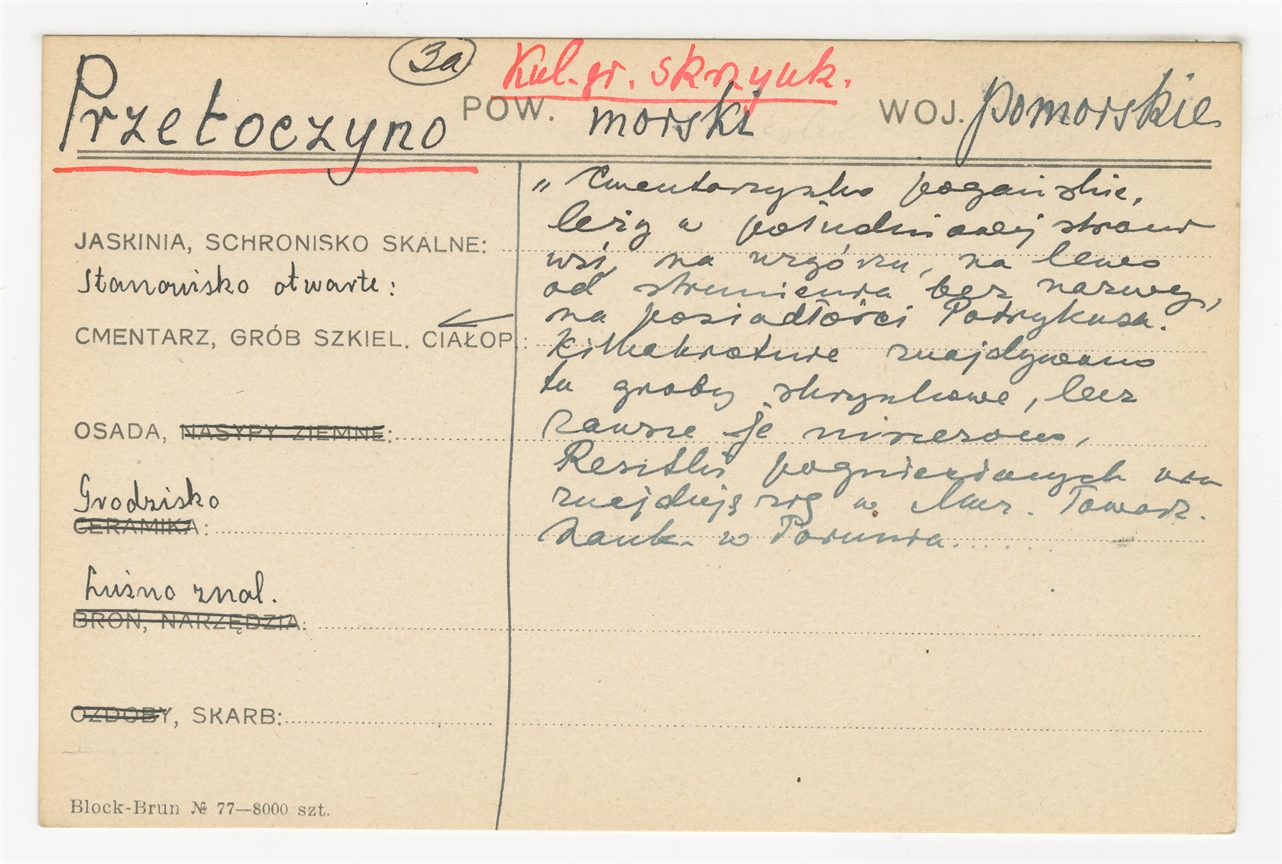 3a Kul. gr. skrzynk.
Przetoczyno POW. morski WOJ. pomorskie
JASKINIA, SCHRONISKO SKALNE:
Stanowisko otwarte:
CMENTARZ, GRÓB SZKIEL. CIAŁOP.:
OSADA, NASYPY ZIEMNE:
Grodzisko
CERAMIKA:
Luźno znal.
BROŃ, NARZĘDZIA:
OZDOBY, SKARB:
Block-Brun № 77—8000 szt.
„ Cmentarzysko pogańskie,
leży w południowej stronie
wsi, na wzgórzu, na lewo
od strumienia bez nazwy,
na posiadłości Patrykusa.
Kilkakrotnie znajdywano
tu groby skrzynkowe, lecz
zawsze je niszczono,
Resztki pogniecionych urn
znajdują się w Muz. Towarz.
Nauk. w Toruniu.